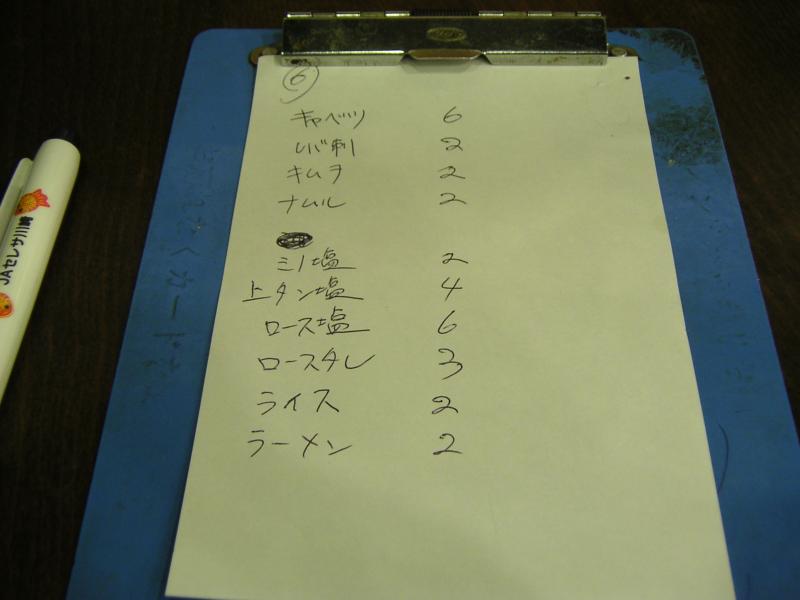 ⑥
キャベツ 6
レバ刺 2
キムチ 2
ナムル 2
ミノ塩 2
上タン塩 4
ロース塩 6
ロースタレ 3
ライス 2
ラーメン 2
JAセレサ川崎